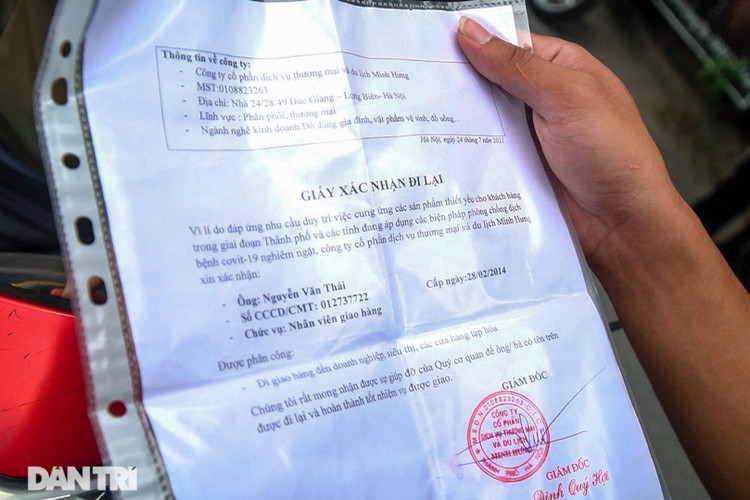 Thông tin về công ty:
- Công ty cổ phần dịch vụ thương mại và du lịch Minh Hưng
- MST:0108823263
- Địa chỉ: Nhà 24/28/49 Đức Giang – Long Biên- Hà Nội
- Lĩnh vực : Phân phối, thương mại
- Ngành nghề kinh doanh:Đồ dùng gia đình, vật phẩm vệ sinh, đồ uống…
Hà Nội, ngày 24 tháng 7 năm 2021
GIẤY XÁC NHẬN ĐI LẠI
Vì lí do đáp ứng nhu cầu duy trì việc cung ứng các sản phẩm thiết yếu cho khách hàng
trong giai đoạn Thành phố và các tỉnh đang áp dụng các biện pháp phòng chống dịch
bệnh covit-19 nghiêm ngặt, công ty cổ phần dịch vụ thương mại và du lịch Minh Hưng
xin xác nhận:
- Ông: Nguyễn Văn Thái
- Số CCCD/CMT: 012737722 Cấp ngày:28/02/2014
- Chức vụ: Nhân viên giao hàng
Được phân công:
- Đi giao hàng đến doanh nghiệp, siêu thị, các cửa hàng tạp hóa
Chúng tôi rất mong nhận được sự giúp đỡ của Quý cơ quan để ông/ bà có tên trên
được đi lại và hoàn thành tốt nhiệm vụ được giao.
GIÁM ĐỐC
M.S.D.N:0108823263-C.T.C.P
CÔNG TY
CỔ PHẦN
DỊCH VỤ THƯƠNG MẠI
VÀ DU LỊCH
MINH HƯNG
THÀNH PHỐ HÀ NỘI
GIÁM ĐỐC
Đinh Quý Hợi
DÂN TRÍ